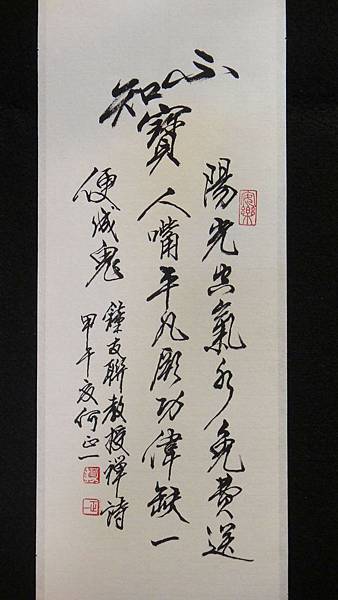 不知
寶
陽光空氣水免費送
人嘴平凡功偉缺一
便成鬼
鐘友聯教授禪詩
甲午夏何正一